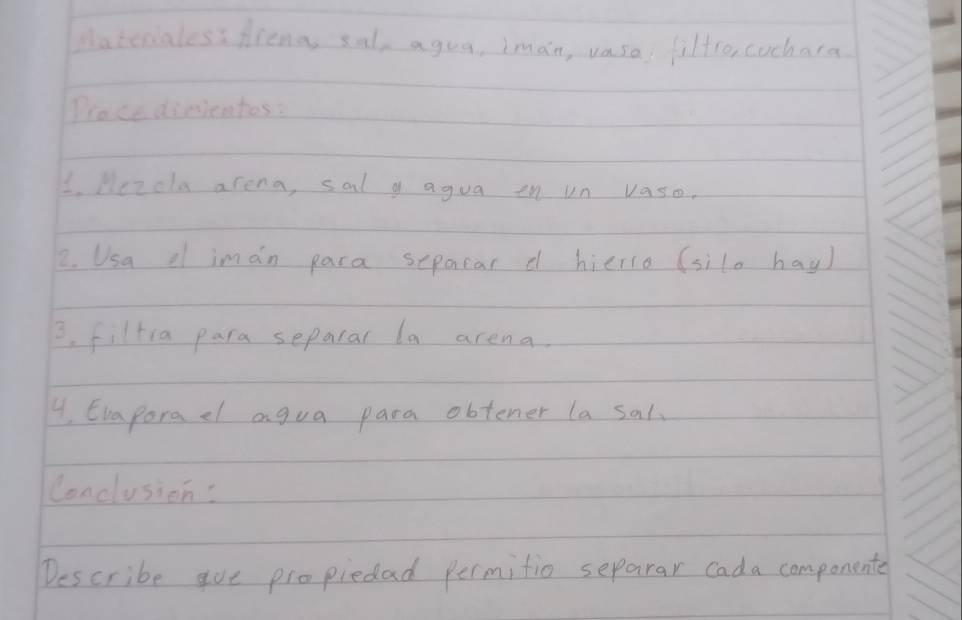 Materiales: Arena, sal, agua, imán, vaso, filtro, cuchara
Procedimientos:
1. Mezcla arena, sal y agua en un vaso.
2. Usa el imán para separar el hierro (si lo hay)
3. filtra para separar la arena.
4. Evapora el agua para obtener la sal.
Conclusión:
Describe que propiedad permitio separar cada componente